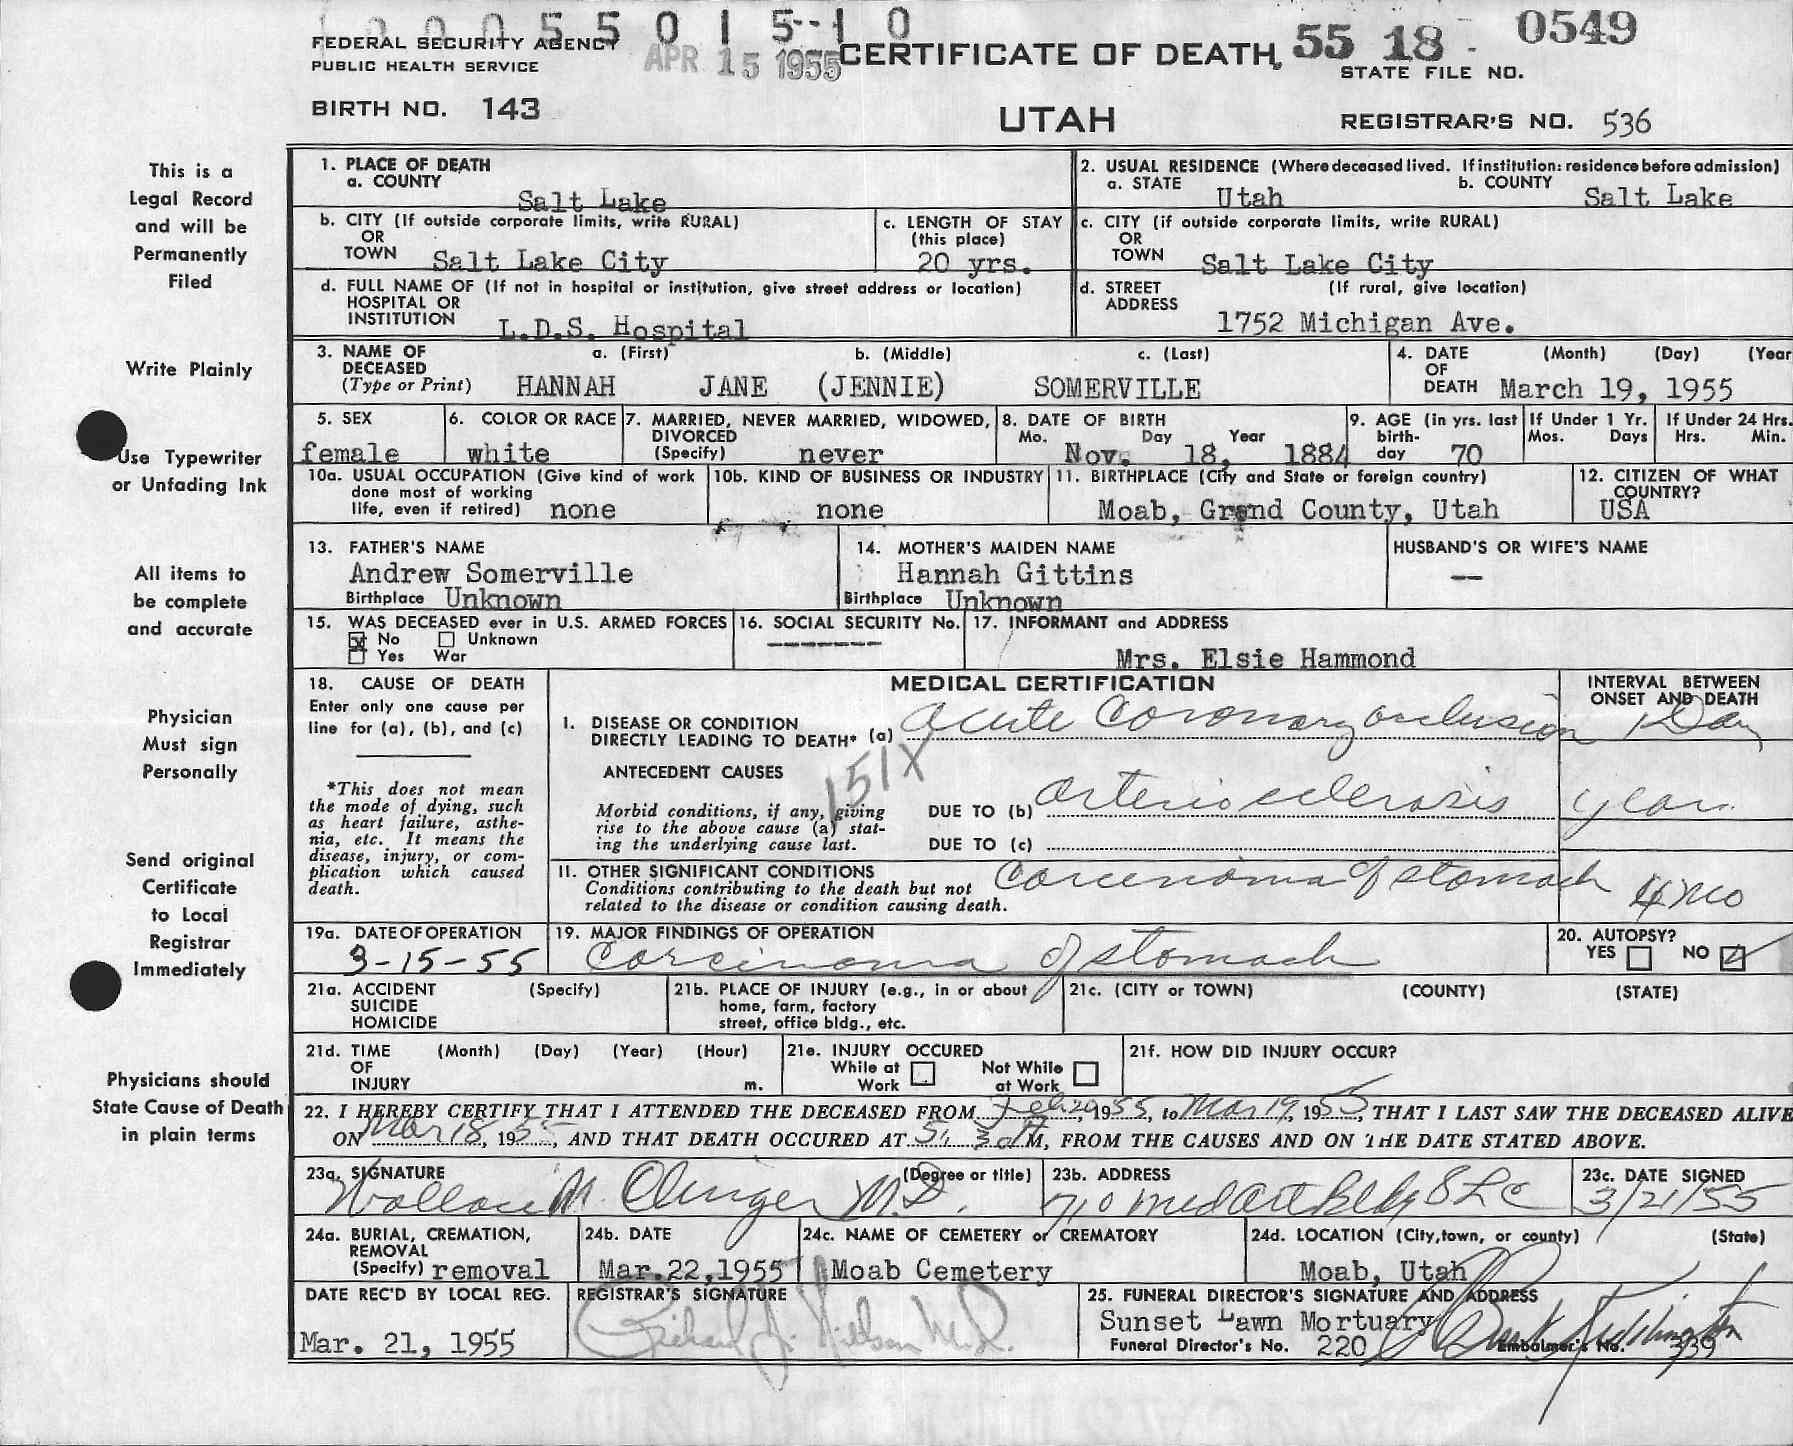 0 0 0 5 5 0 1 5 - 1 0
FEDERAL SECURITY AGENCY
PUBLIC HEALTH SERVICE
APR 15 1955
CERTIFICATE OF DEATH
55 18 - 0549
STATE FILE NO.
BIRTH NO. 143
UTAH
REGISTRAR'S NO. 536
This is a
Legal Record
and will be
Permanently
Filed
Write Plainly
Use Typewriter
or Unfading Ink
All items to
be complete
and accurate
Physician
Must sign
Personally
Send original
Certificate
to Local
Registrar
Immediately
Physicians should
State Cause of Death
in plain terms
1. PLACE OF DEATH
a. COUNTY
Salt Lake
2. USUAL RESIDENCE (Where deceased lived. If institution: residence before admission)
a. STATE Utah b. COUNTY Salt Lake
b. CITY (If outside corporate limits, write RURAL)
OR
TOWN Salt Lake City
c. LENGTH OF STAY
(this place)
20 yrs.
c. CITY (if outside corporate limits, write RURAL)
OR
TOWN Salt Lake City
d. FULL NAME OF (If not in hospital or institution, give street address or location)
HOSPITAL OR
INSTITUTION L.D.S. Hospital
d. STREET (If rural, give location)
ADDRESS
1752 Michigan Ave.
3. NAME OF a. (First) b. (Middle) c. (Last)
DECEASED
(Type or Print) HANNAH JANE (JENNIE) SOMERVILLE
4. DATE (Month) (Day) (Year
OF
DEATH March 19, 1955
5. SEX
female
6. COLOR OR RACE
white
7. MARRIED, NEVER MARRIED, WIDOWED,
DIVORCED
(Specify) never
8. DATE OF BIRTH
Mo. Day Year
Nov. 18, 1884
9. AGE (in yrs. last
birth-
day 70
If Under 1 Yr.
Mos. Days
If Under 24 Hrs.
Hrs. Min.
10a. USUAL OCCUPATION (Give kind of work
done most of working
life, even if retired) none
10b. KIND OF BUSINESS OR INDUSTRY
none
11. BIRTHPLACE (City and State or foreign country)
Moab, Grand County, Utah
12. CITIZEN OF WHAT
COUNTRY?
USA
13. FATHER'S NAME
Andrew Somerville
Birthplace Unknown
14. MOTHER'S MAIDEN NAME
Hannah Gittins
Birthplace Unknown
HUSBAND'S OR WIFE'S NAME
—
15. WAS DECEASED ever in U.S. ARMED FORCES
No Unknown
Yes War
16. SOCIAL SECURITY No.
--------
17. INFORMANT and ADDRESS
Mrs. Elsie Hammond
18. CAUSE OF DEATH
Enter only one cause per
line for (a), (b), and (c)
*This does not mean
the mode of dying, such
as heart failure, asthe-
nia, etc. It means the
disease, injury, or com-
plication which caused
death.
MEDICAL CERTIFICATION
INTERVAL BETWEEN
ONSET AND DEATH
I. DISEASE OR CONDITION
DIRECTLY LEADING TO DEATH* (a) Acute Coronary occlusion 1 Day
ANTECEDENT CAUSES
151X
Morbid conditions, if any, giving
rise to the above cause (a) stat-
ing the underlying cause last.
DUE TO (b) Arteriosclerosis years
DUE TO (c)
11. OTHER SIGNIFICANT CONDITIONS
Conditions contributing to the death but not
related to the disease or condition causing death.
Carcinoma of stomach 4 mo
19a. DATE OF OPERATION
3-15-55
19. MAJOR FINDINGS OF OPERATION
Carcinoma of stomach
20. AUTOPSY?
YES NO
21a. ACCIDENT (Specify)
SUICIDE
HOMICIDE
21b. PLACE OF INJURY (e.g., in or about
home, farm, factory
street, office bldg., etc.
21c. (CITY or TOWN) (COUNTY) (STATE)
21d. TIME (Month) (Day) (Year) (Hour)
OF
INJURY m.
21e. INJURY OCCURED
While at Work Not While at Work
21f. HOW DID INJURY OCCUR?
22. I HEREBY CERTIFY THAT I ATTENDED THE DECEASED FROM Feb 29, 1955, to Mar 19, 1955, THAT I LAST SAW THE DECEASED ALIVE
ON Mar 18, 1955, AND THAT DEATH OCCURED AT 5:30 A M, FROM THE CAUSES AND ON THE DATE STATED ABOVE.
23a. SIGNATURE (Degree or title)
Wallace M. Olinger M.D.
23b. ADDRESS
710 Med Art Bldg SLC
23c. DATE SIGNED
3/21/55
24a. BURIAL, CREMATION,
REMOVAL
(Specify) removal
24b. DATE
Mar. 22, 1955
24c. NAME OF CEMETERY or CREMATORY
Moab Cemetery
24d. LOCATION (City, town, or county) (State)
Moab, Utah
DATE REC'D BY LOCAL REG.
Mar. 21, 1955
REGISTRAR'S SIGNATURE
Richard J. Nielson M.D.
25. FUNERAL DIRECTOR'S SIGNATURE AND ADDRESS
Sunset Lawn Mortuary
Funeral Director's No. 220 Embalmer's No. 339